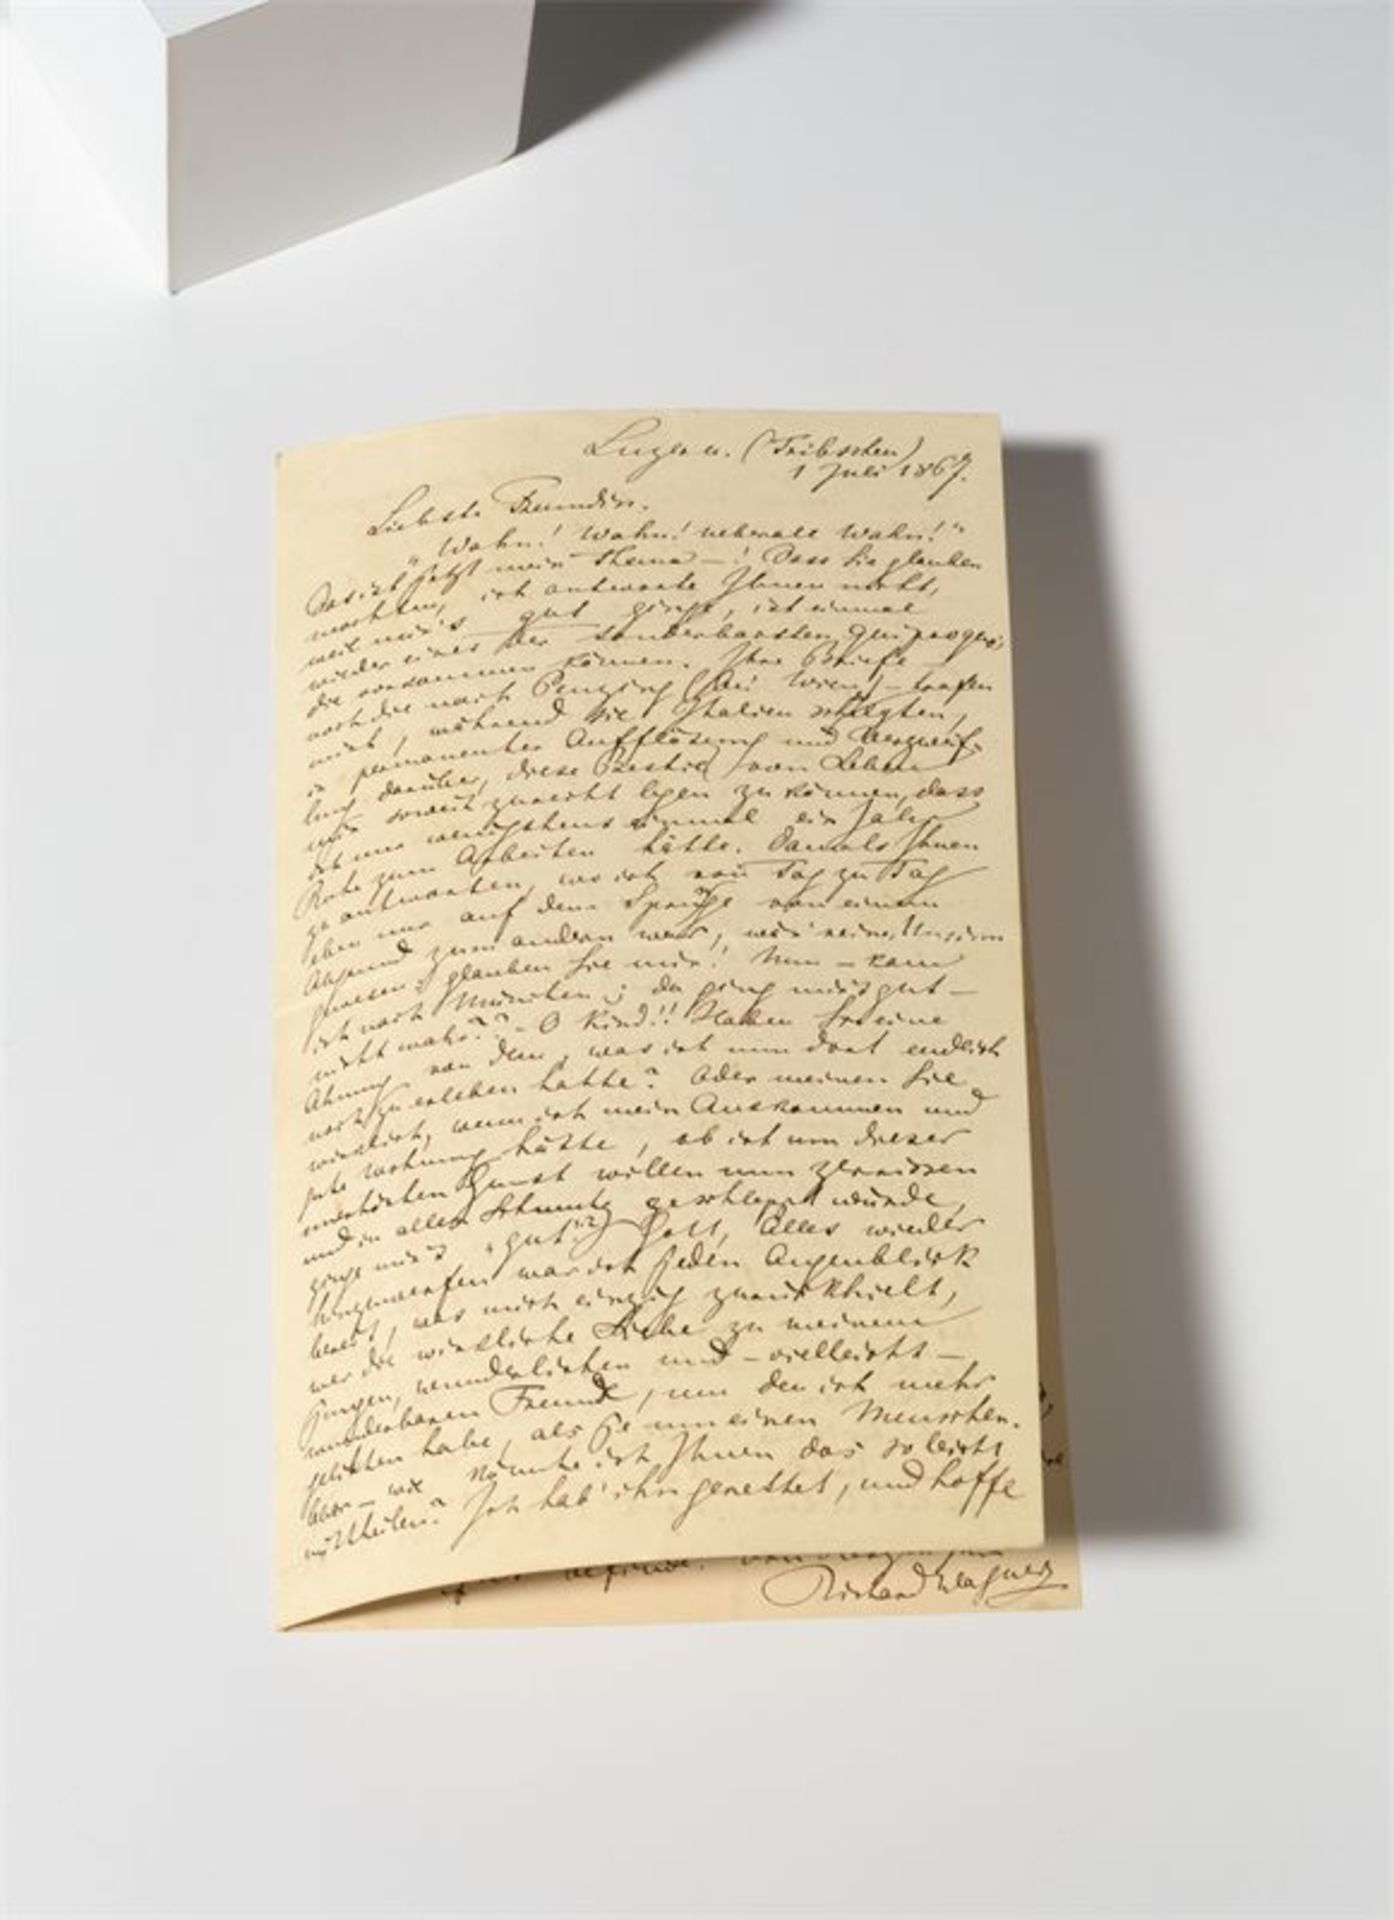 Luzern. (Tribschen)
1 Juli 1867.
Liebste Freundin.
"Wahn! Wahn! Ueberall Wahn!"
Das ist jetzt mein Thema —! Dass Sie glauben
mochten, ich antworte Ihnen nicht,
weil mir's gut ginge, ist einmal
wieder eines der sonderbarsten quiproquo's,
die vorkommen können. Ihre Briefe —
noch die nach Penzing (bei Wien) — trafen
mich, während Sie Italien
in permanenter Auflösung und Verzweif-
lung darüber, diese Bestie von Leben
mir soweit zurecht legen zu können, dass
ich nur wenigstens einmal ein Jahr
Ruhe zum Arbeiten hätte. Damals Ihnen
zu antworten, wo ich von Tag zu Tag
eben nur auf dem Sprunge von einem
Abgrund zum andern war, wär' reiner Unsinn
gewesen; glauben Sie mir! Nun — kam
ich nach München; da ging mir's gut —
nicht wahr?? — O Kind!! Haben Sie eine
Ahnung von dem, was ich nun dort endlich
noch zu erleben hatte? Oder meinen Sie
wirklich, wenn ich mein Auskommen und
gute Wohnung hätte, ob ich um dieser
unerhörten Gunst willen nun zerrissen
und in allen Schmutz geschleppt würde,
ginge mir's "gut"? Gott, Alles wieder
hinzuwerfen war ich jeden Augenblick
bereit, was mich einzig zurückhielt,
war die wirkliche Liebe zu meinem
jungen, wunderlichen und — vielleicht —
wunderbaren Freunde, um den ich mehr
gelitten habe, als je um einen Menschen.
Aber — wie könnte ich Ihnen das so leicht
mittheilen? Ich hab' ihn gerettet, und hoffe
befinde. Von
Richard Wagner